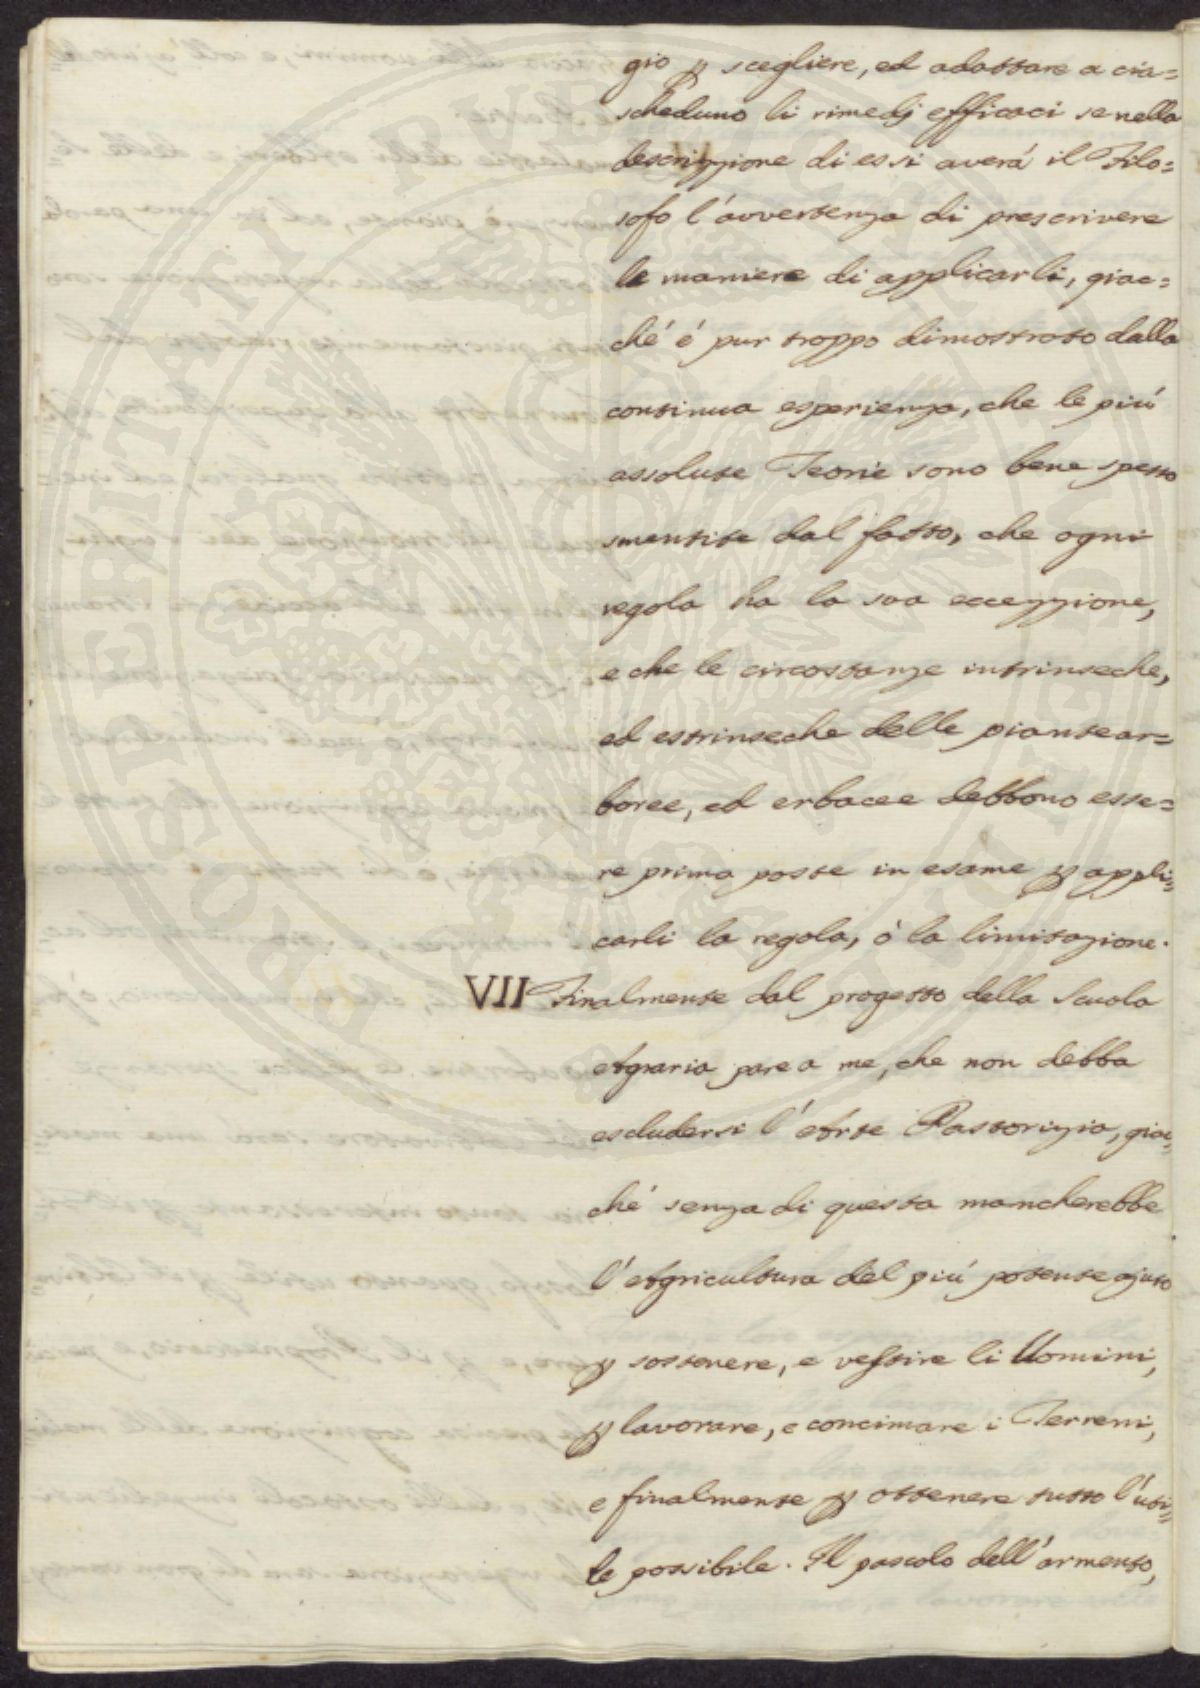 gio p scegliere, ed adattare a cia=
scheduno li rimedj efficaci se nella
descrizzione di essi averá il Filo=
sofo l'avvertenza di prescrivere
le maniere di applicarli, giac=
ché é pur troppo dimostrato dalla
continua esperienza, che le piú
assolute Teorie sono bene spesso
smentite dal fatto, che ogni
regola ha la sua eccezzione,
e che le circostanze intrinseche,
ed estrinseche delle piante ar=
boree, ed erbacee debbono esse=
re prima poste in esame p appli=
carli la regola, ò la limitazione.
VII Finalmente dal progetto della Scuola
Agraria pare a me, che non debba
escludersi l'Arte Pastorizia, giac=
ché senza di questa mancherebbe
l'Agricultura del piú potente ajuto
p sostenere, e vestire li Uomini,
p lavorare, e concimare i Terreni,
e finalmente p ottenere tutto l'uti=
le possibile. Il pascolo dell'armento,
PROSPERITATI PVBLICAE AVGENDAE